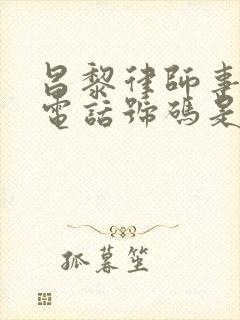 昌黎律師事
電話號碼是
狐暮笙